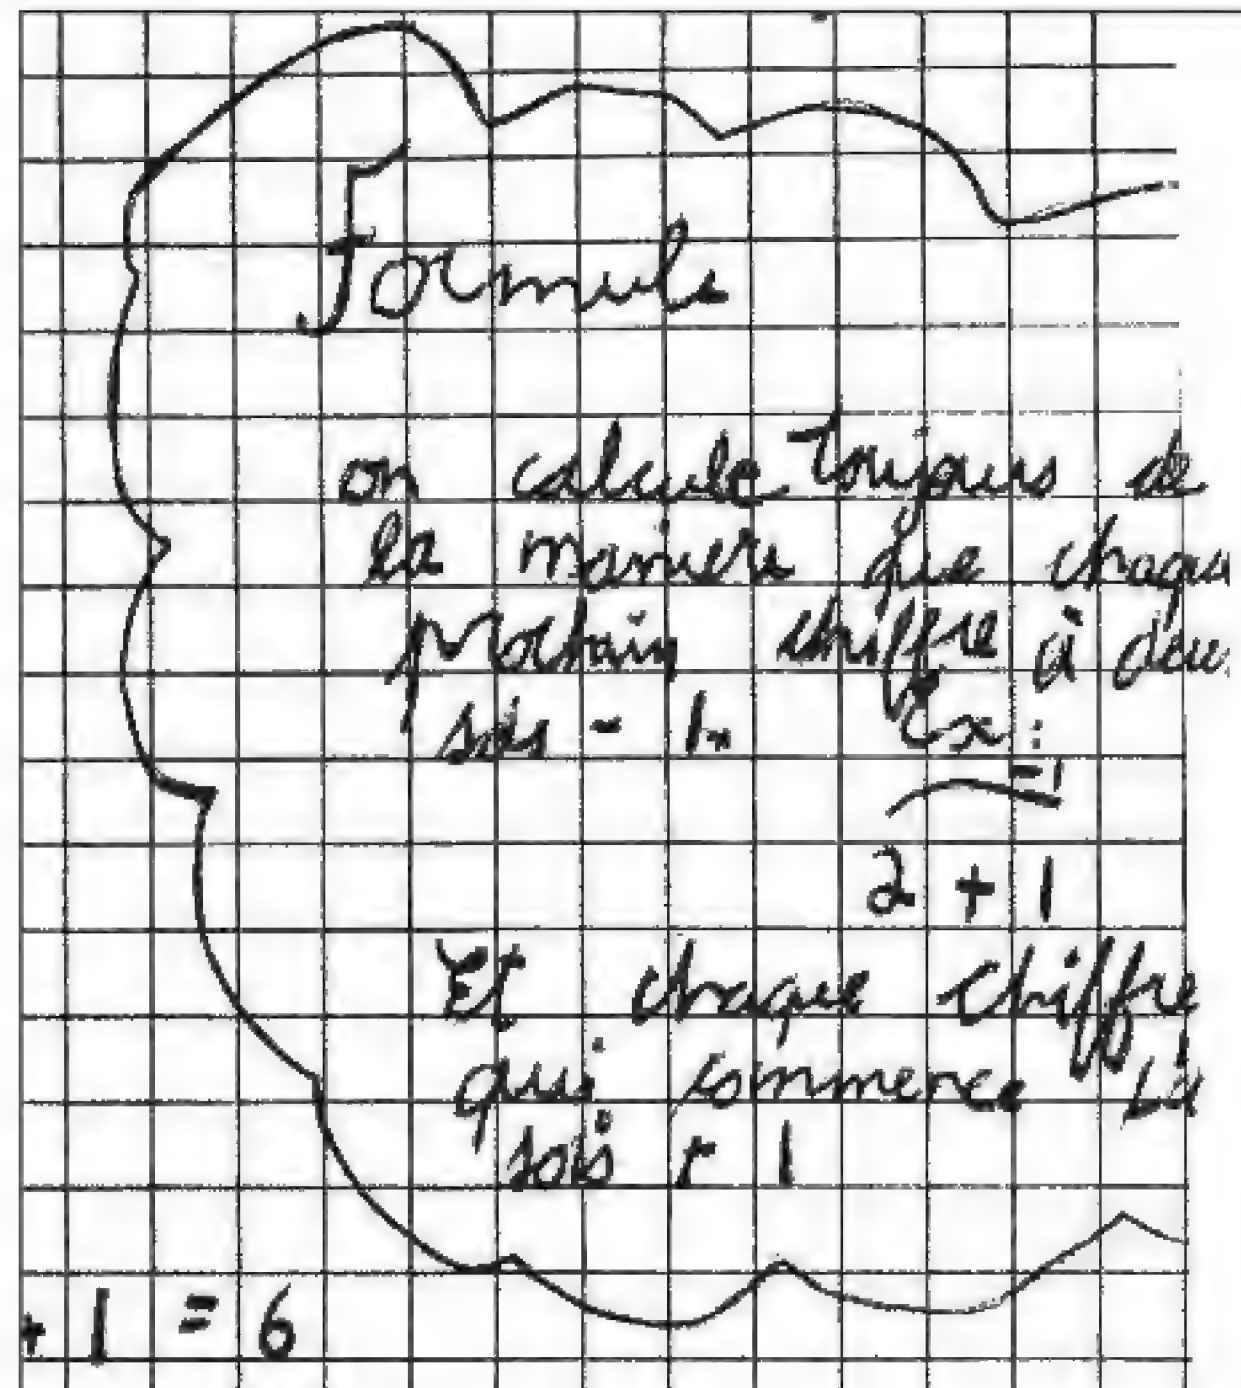 Formule
on calcule toujours de
la maniere que chaque
prochain chiffre à deu
sois - 1. Ex:
-1
2 + 1
Et chaque chiffre
qui commence la
sois + 1
+ 1 = 6